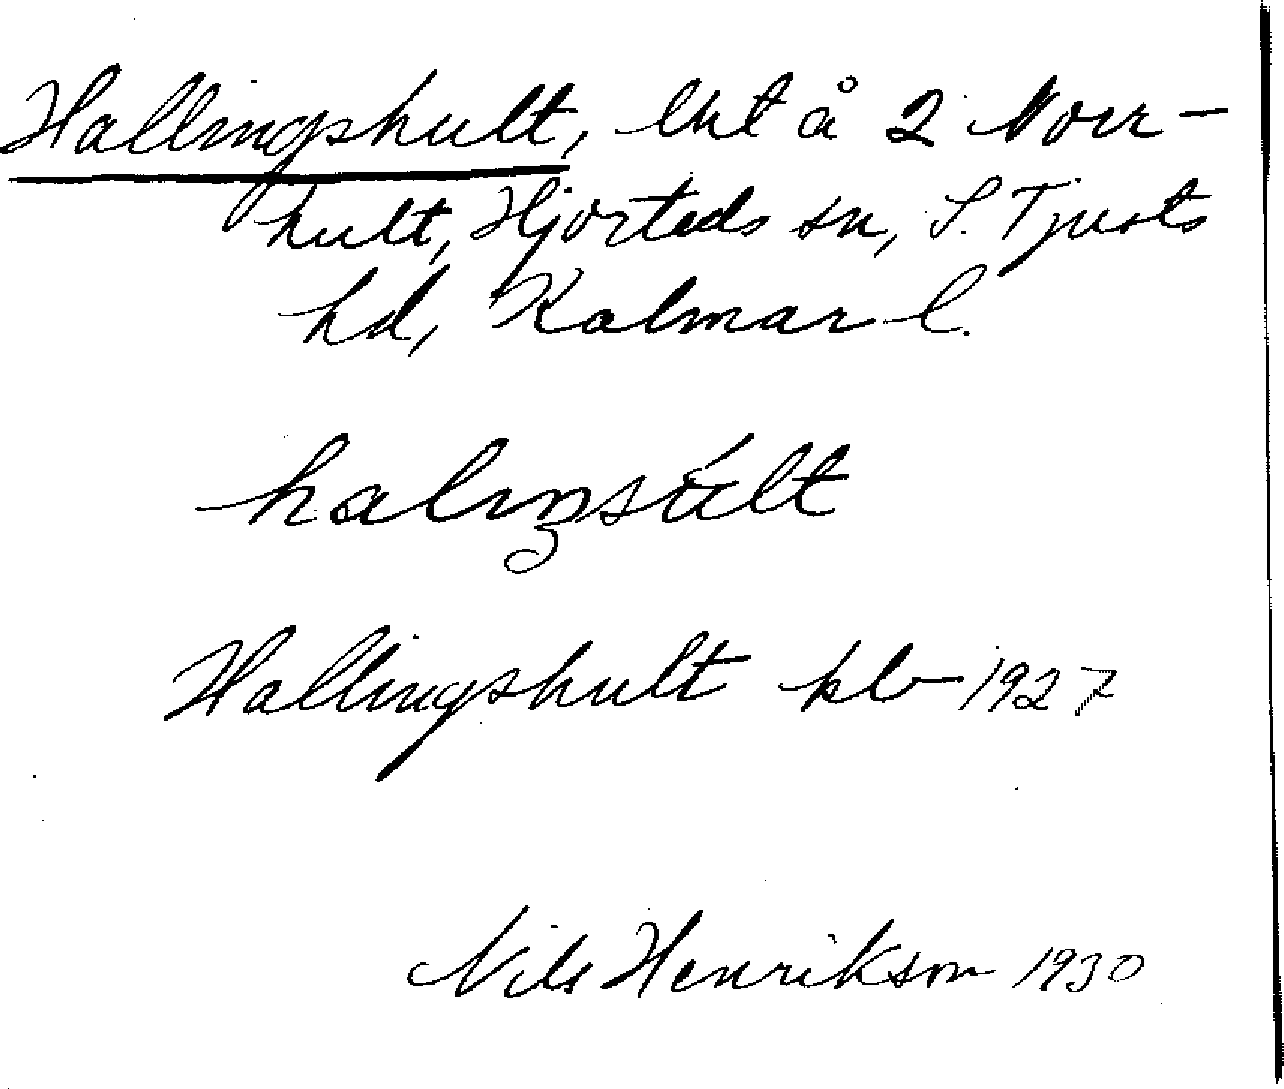 Hallingshult, lht å 2 Norr-
hult, Hjorteds sn, S. Tjusts
hd, Kalmar l.
halıŋsúlt
Hallingshult kb 1927
Nils Henrikson 1930